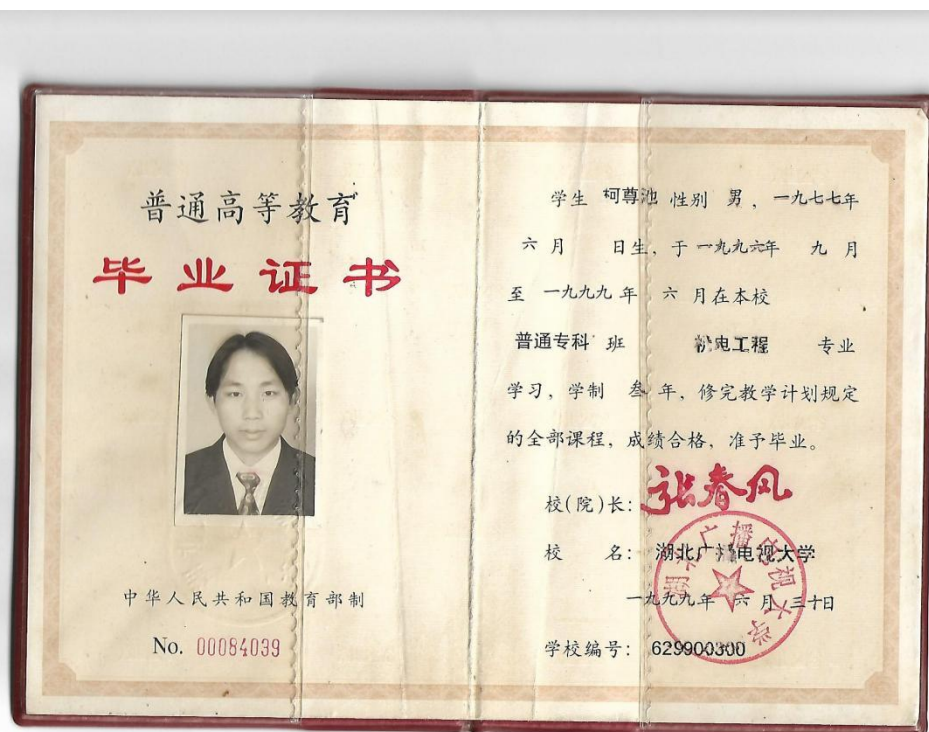 普通高等教育
毕业证书
中华人民共和国教育部制
No. 00084039
学生 柯尊池 性别 男 , 一九七七年
六 月 日生, 于 一九九六年 九 月
至 一九九九 年 六 月在本校
普通专科 班 机电工程 专业
学习, 学制 叁 年, 修完教学计划规定
的全部课程, 成绩合格, 准予毕业。
校(院)长: 张春风
校 名: 湖北广播电视大学
一九九九年 六 月 三十日
学校编号: 629900300
湖北广播电视大学